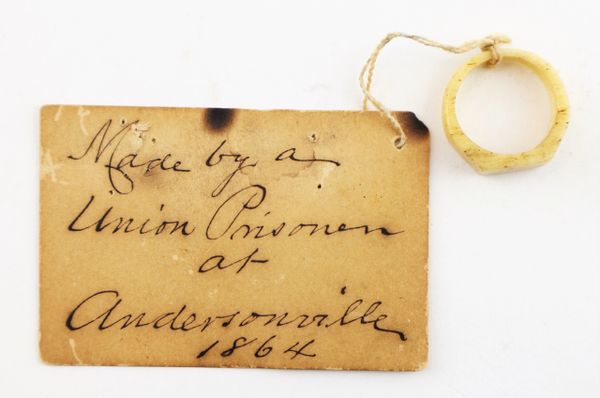 Made by a
Union Prisoner
at
Andersonville
1864